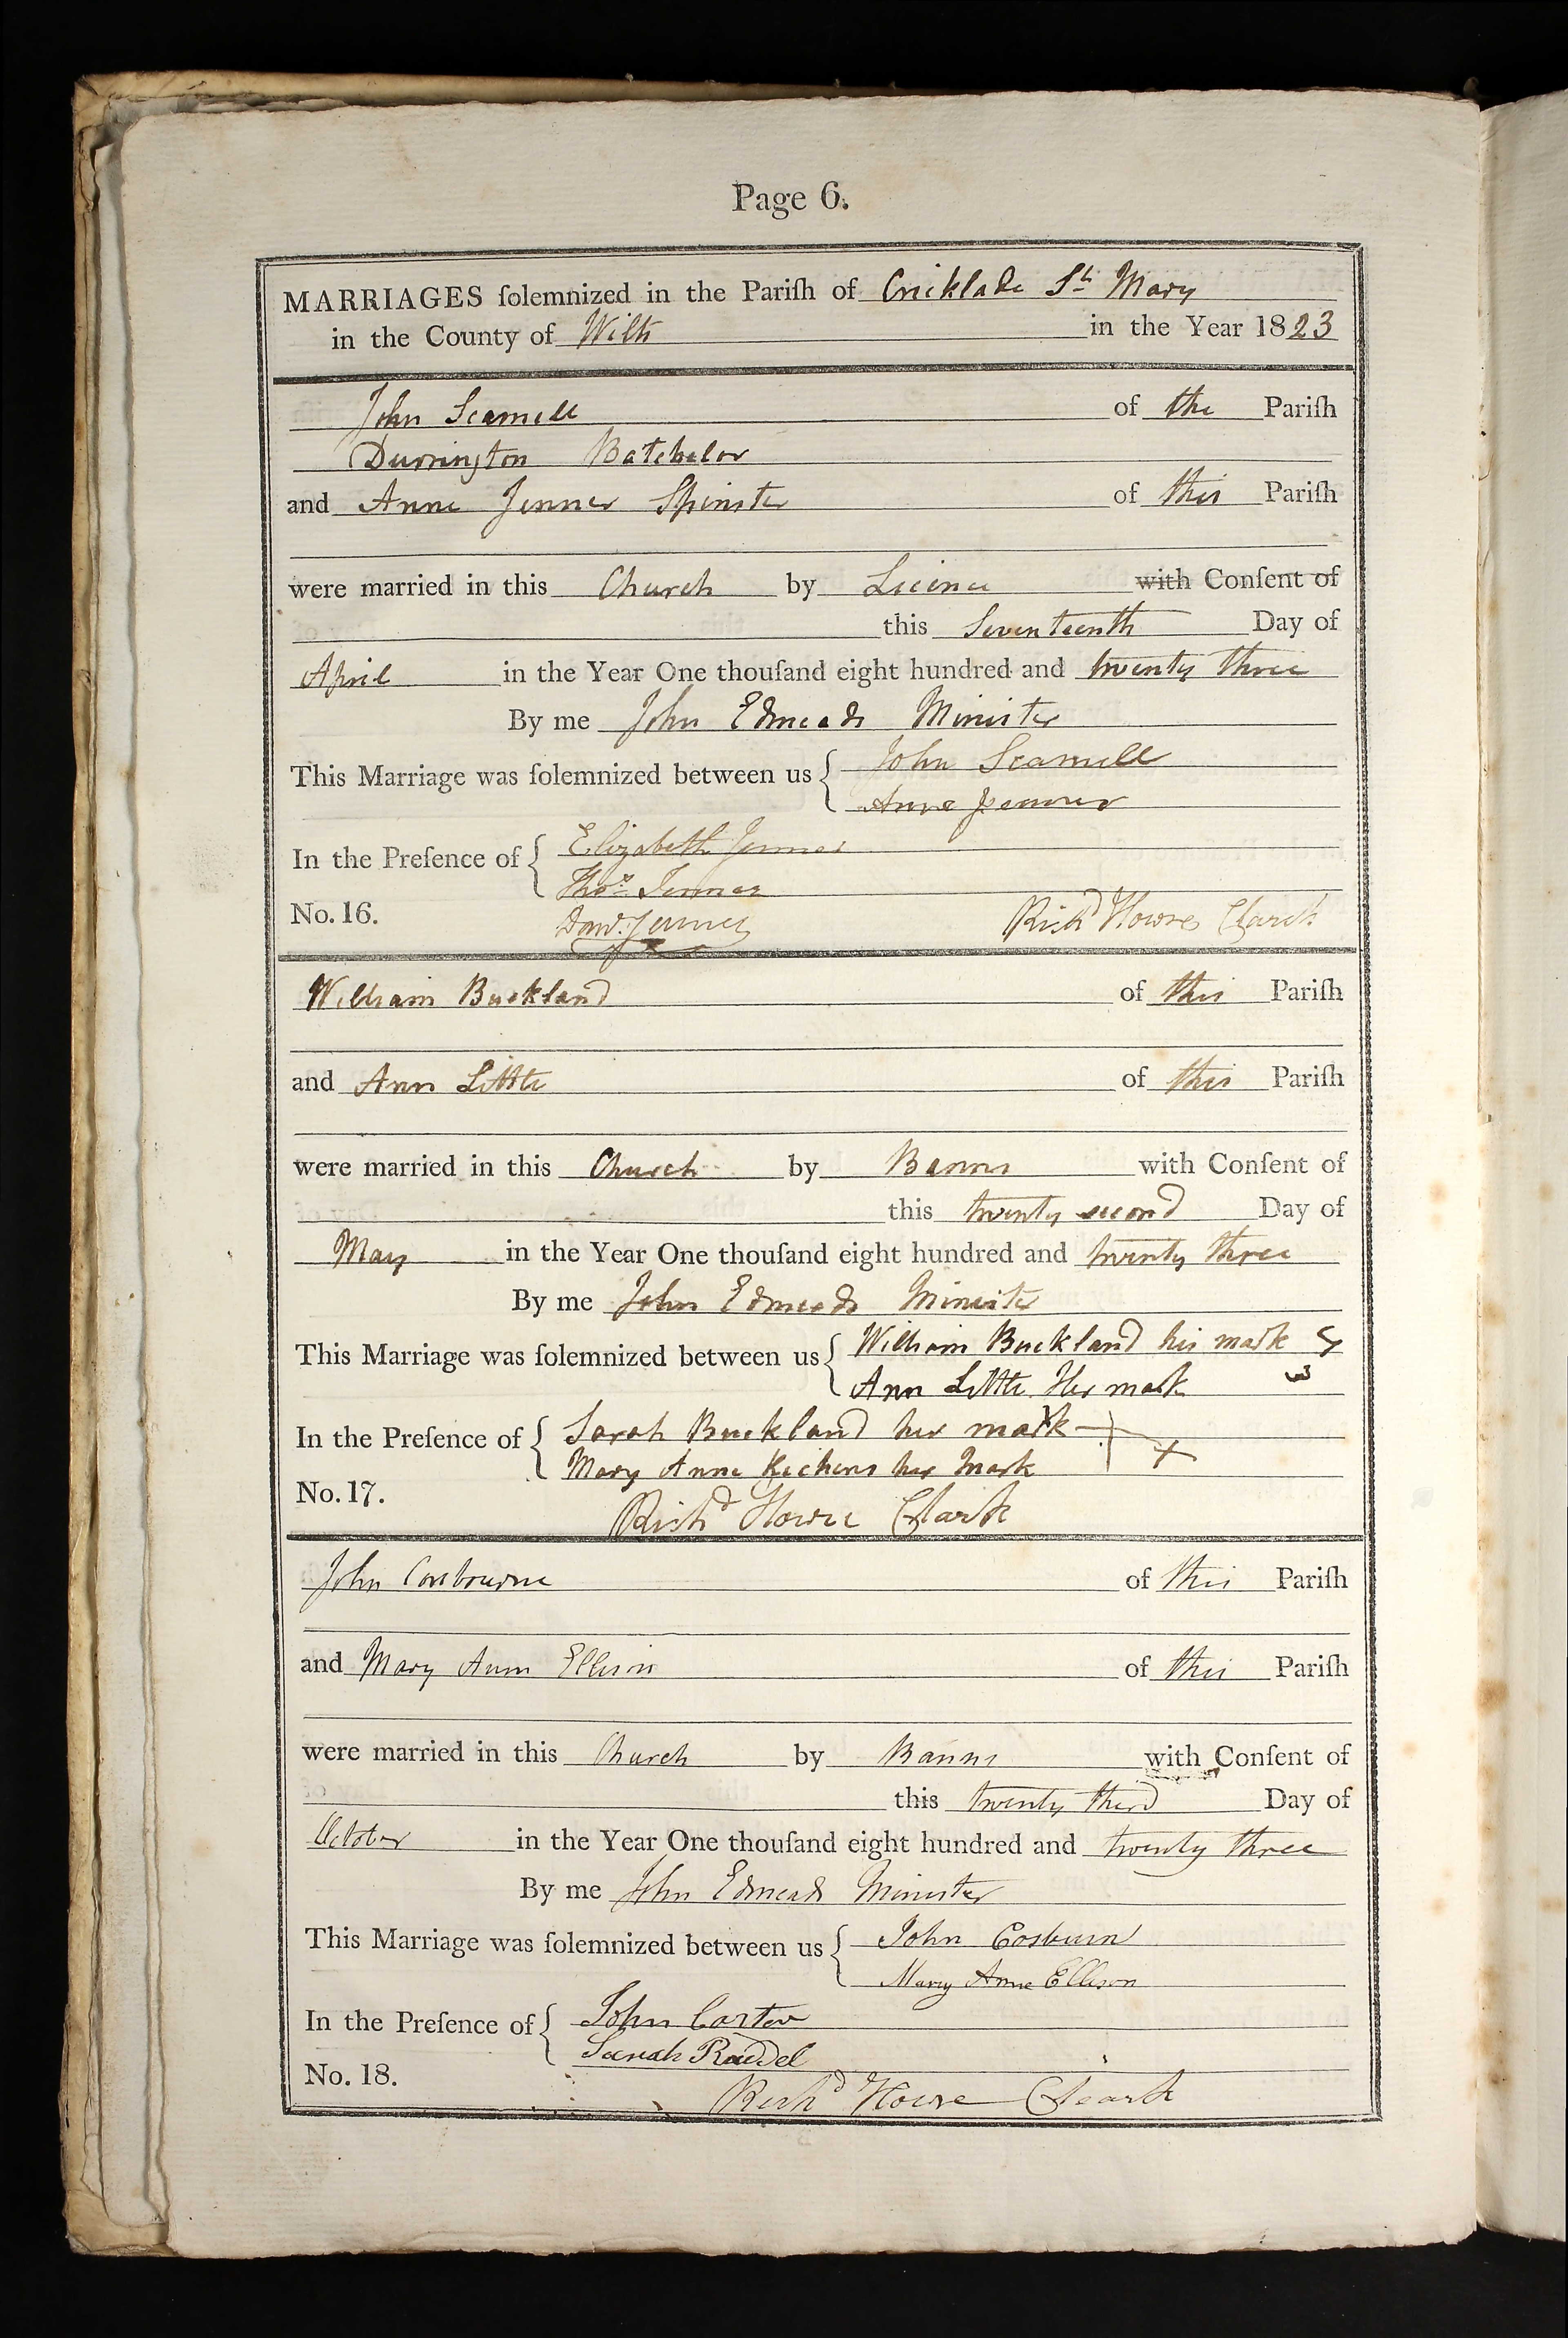 Page 6.
MARRIAGES ſolemnized in the Pariſh of Cricklade St Mary
in the County of Wilts in the Year 1823
John Scamell of the Pariſh
Durrington Batchelor
and Anne Jenner Spinster of this Pariſh
were married in this Church by Licence with Conſent of
this Seventeenth Day of
April in the Year One thouſand eight hundred and twenty three
By me John Edmeads Minister
This Marriage was ſolemnized between us John Scamell
Anne Jenner
In the Preſence of Elizabeth Jenner
Thos. Jenner
No. 16. Jenner Richd Howse Clark
William Buckland of this Pariſh
and Ann Little of this Pariſh
were married in this Church by Banns with Conſent of
this twenty second Day of
May in the Year One thouſand eight hundred and twenty three
By me John Edmeads Minister
This Marriage was ſolemnized between us William Buckland his mark
Ann Little Her mark
In the Preſence of Sarah Buckland her mark
Mary Anne her mark X
No. 17.
Richd Howse Clark
John of this Pariſh
and Mary Ann Ellison of this Pariſh
were married in this Church by Banns with Conſent of
this twenty third Day of
October in the Year One thouſand eight hundred and twenty three
By me John Edmeads Minister
This Marriage was ſolemnized between us John Cosburn
Mary Anne Ellison
In the Preſence of John Carter
Sarah
No. 18.
Richd Howse Cleark